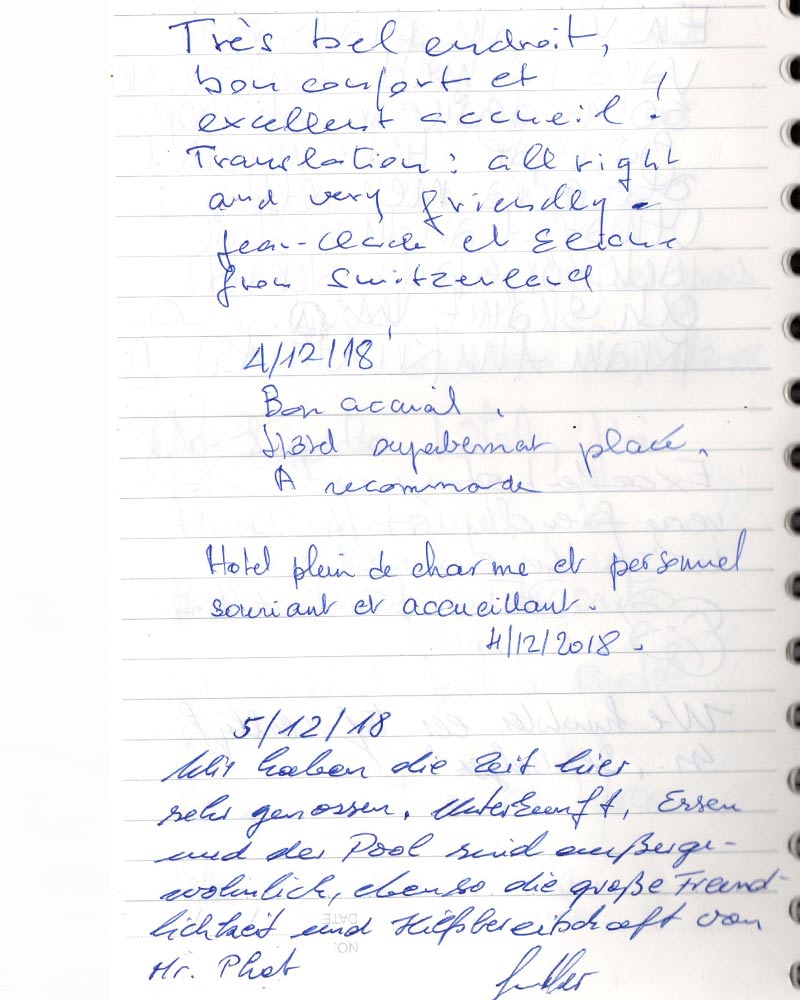 Très bel endroit,
bon confort et
excellent accueil !
Translation : all right
and very friendly.
Jean-Claude et
from Switzerland
4/12/18
Bon accueil.
placé.
A recommande
Hotel plein de charme et personnel
souriant et accueillant.
4/12/2018.
5/12/18
Wir haben die Zeit hier
sehr genossen. Unterkunft, Essen
und der Pool sind außerge-
wöhnlich, ebenso die große Freund-
lichkeit und Hilfsbereitschaft von
Mr. Phat
DATE
NO.